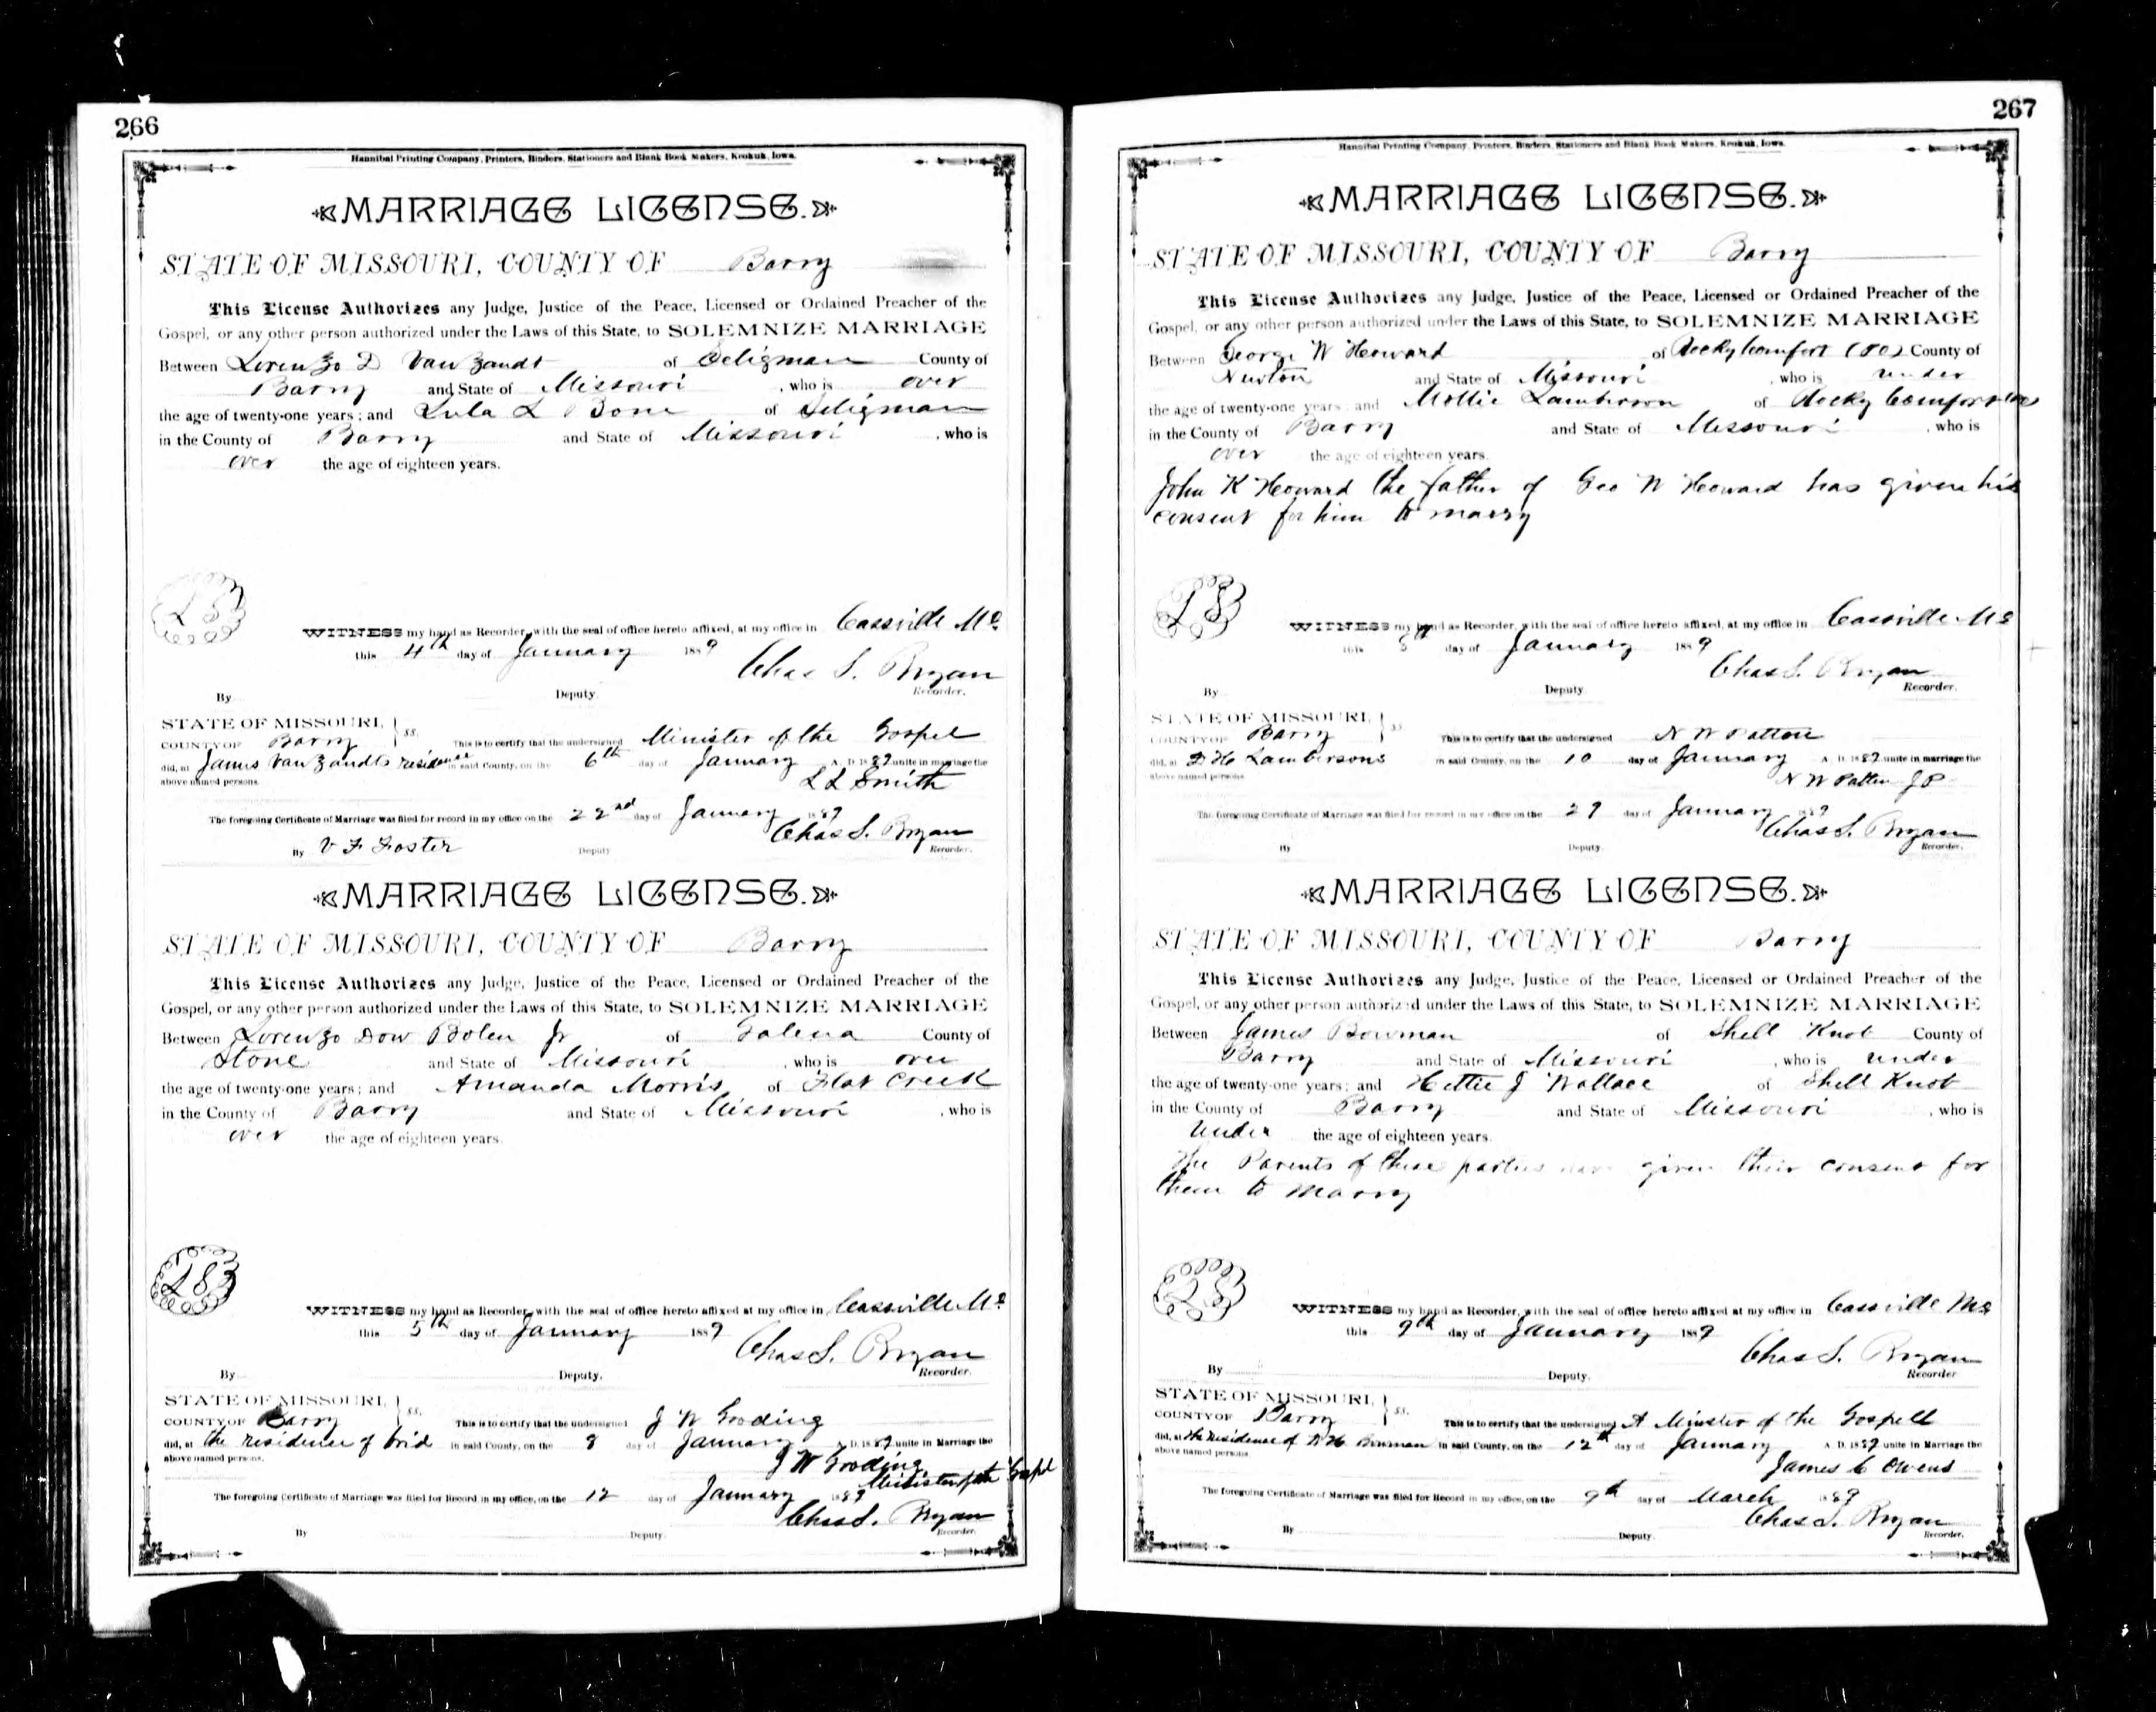 266
Hannibal Printing Company, Printers, Binders, Stationers and Blank Book Makers, Keokuk, Iowa.
MARRIAGE LICENSE.
STATE OF MISSOURI, COUNTY OF Barry
This License Authorizes any Judge, Justice of the Peace, Licensed or Ordained Preacher of the
Gospel, or any other person authorized under the Laws of this State, to SOLEMNIZE MARRIAGE
Between Lorenzo D VanZandt of Seligman County of
Barry and State of Missouri, who is over
the age of twenty-one years; and Lula L Bone of Seligman
in the County of Barry and State of Missouri, who is
over the age of eighteen years.
LS
WITNESS my hand as Recorder, with the seal of office hereto affixed, at my office in Cassville Mo
this 4th day of January 1889
Chas S. Bryan
By Deputy. Recorder.
STATE OF MISSOURI, } ss.
COUNTY OF Barry This is to certify that the undersigned Minister of the Gospel
did, at James VanZandts residence in said County, on the 6th day of January A. D. 1889 unite in marriage the
above named persons. L L Smith
The foregoing Certificate of Marriage was filed for record in my office on the 22nd day of January 1889
Chas S. Bryan
By V F Foster Deputy Recorder.
MARRIAGE LICENSE.
STATE OF MISSOURI, COUNTY OF Barry
This License Authorizes any Judge, Justice of the Peace, Licensed or Ordained Preacher of the
Gospel, or any other person authorized under the Laws of this State, to SOLEMNIZE MARRIAGE
Between Lorenzo Dow Bolen Jr of Galena County of
Stone and State of Missouri, who is over
the age of twenty-one years; and Amanda Morris of Flat Creek
in the County of Barry and State of Missouri, who is
over the age of eighteen years.
LS
WITNESS my hand as Recorder, with the seal of office hereto affixed at my office in Cassville Mo
this 5th day of January 1889
Chas S. Bryan
By Deputy. Recorder.
STATE OF MISSOURI, } ss.
COUNTY OF Barry This is to certify that the undersigned J W Gooding
did, at the residence of brid in said County, on the 8 day of January A. D. 1889 unite in Marriage the
above named persons. J W Gooding
Minister of the Gospel
The foregoing Certificate of Marriage was filed for Record in my office, on the 12 day of January 1889
Chas S. Bryan
By Deputy. Recorder.
267
Hannibal Printing Company, Printers, Binders, Stationers and Blank Book Makers, Keokuk, Iowa.
MARRIAGE LICENSE.
STATE OF MISSOURI, COUNTY OF Barry
This License Authorizes any Judge, Justice of the Peace, Licensed or Ordained Preacher of the
Gospel, or any other person authorized under the Laws of this State, to SOLEMNIZE MARRIAGE
Between George W Howard of Rocky Comfort (PO) County of
Newton and State of Missouri, who is under
the age of twenty-one years and Mollie Lamberson of Rocky Comfort
in the County of Barry and State of Missouri, who is
over the age of eighteen years.
John K Howard the father of Geo W Howard has given his
consent for him to marry
LS
WITNESS my hand as Recorder, with the seal of office hereto affixed, at my office in Cassville Mo
this day of January 1889
Chas S. Bryan
By Deputy. Recorder.
STATE OF MISSOURI, } ss.
COUNTY OF Barry This is to certify that the undersigned N W Patton
did, at Lambersons in said County, on the 10 day of January A. D. 1889 unite in marriage the
above named persons N W Patton JP
The foregoing Certificate of Marriage was filed for record in my office on the 29 day of January 1889
Chas S. Bryan
By Deputy. Recorder.
MARRIAGE LICENSE.
STATE OF MISSOURI, COUNTY OF Barry
This License Authorizes any Judge, Justice of the Peace, Licensed or Ordained Preacher of the
Gospel, or any other person authorized under the Laws of this State, to SOLEMNIZE MARRIAGE
Between James Bowman of Shell Knob County of
Barry and State of Missouri, who is under
the age of twenty-one years; and Hettie J Wallace of Shell Knob
in the County of Barry and State of Missouri, who is
under the age of eighteen years.
The Parents of these parties have given their consent for
them to marry
LS
WITNESS my hand as Recorder, with the seal of office hereto affixed at my office in Cassville Mo
this 9th day of January 1889
Chas S. Bryan
By Deputy. Recorder
STATE OF MISSOURI, } ss.
COUNTY OF Barry This is to certify that the undersigned A Minister of the Gospell
did, at the residence of Bowman in said County, on the 12th day of January A. D. 1889 unite in Marriage the
above named persons James C Owens
The foregoing Certificate of Marriage was filed for Record in my office, on the 9th day of March 1889
Chas S. Bryan
By Deputy. Recorder.